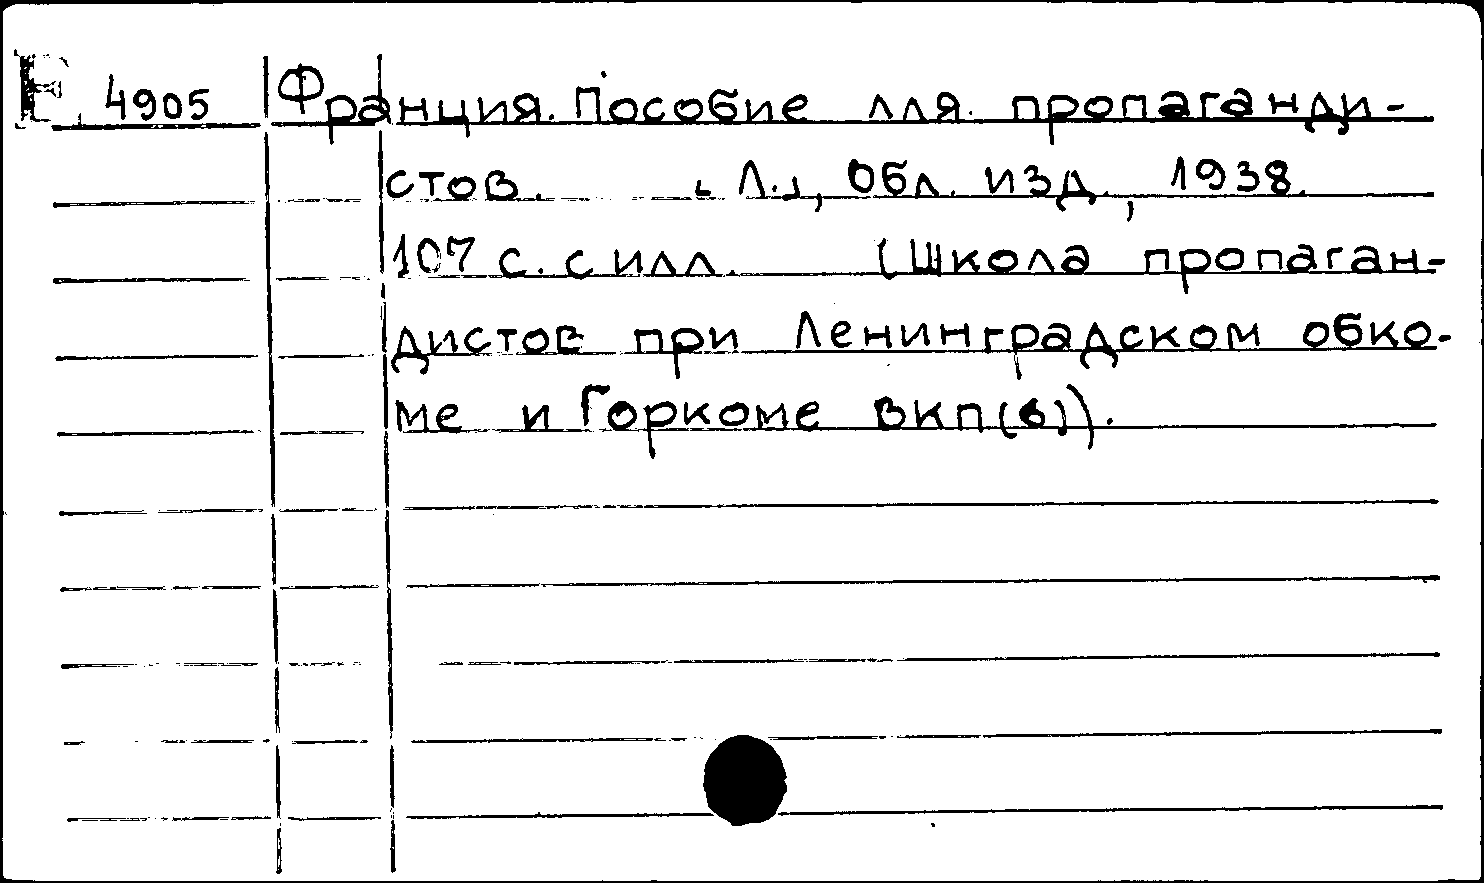 E 4905 Франция. Пособие для пропаганди-
стов. [Л.], Обл. изд, 1938.
107 с. с илл. (Школа пропаган-
дистов при Ленинградском обко-
ме и Горкоме ВКП(б)).